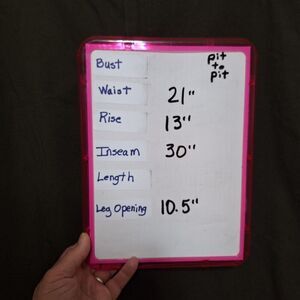 Bust
pit
to
pit
Waist 21"
Rise 13"
Inseam 30"
Length
Leg Opening 10.5"